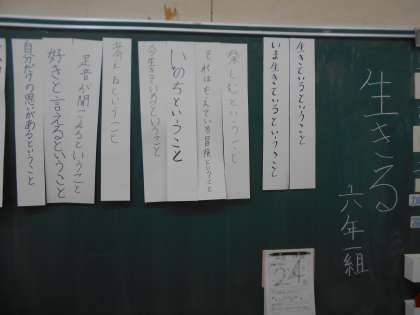 生きる
六年一組
生きているということ
いま生きているということ
楽しむということ
それはもえている冒険ということ
いのちということ
今生きているということ
足音が聞こえるということ
好きと言えるということ
自分だけの思いがあるということ
24